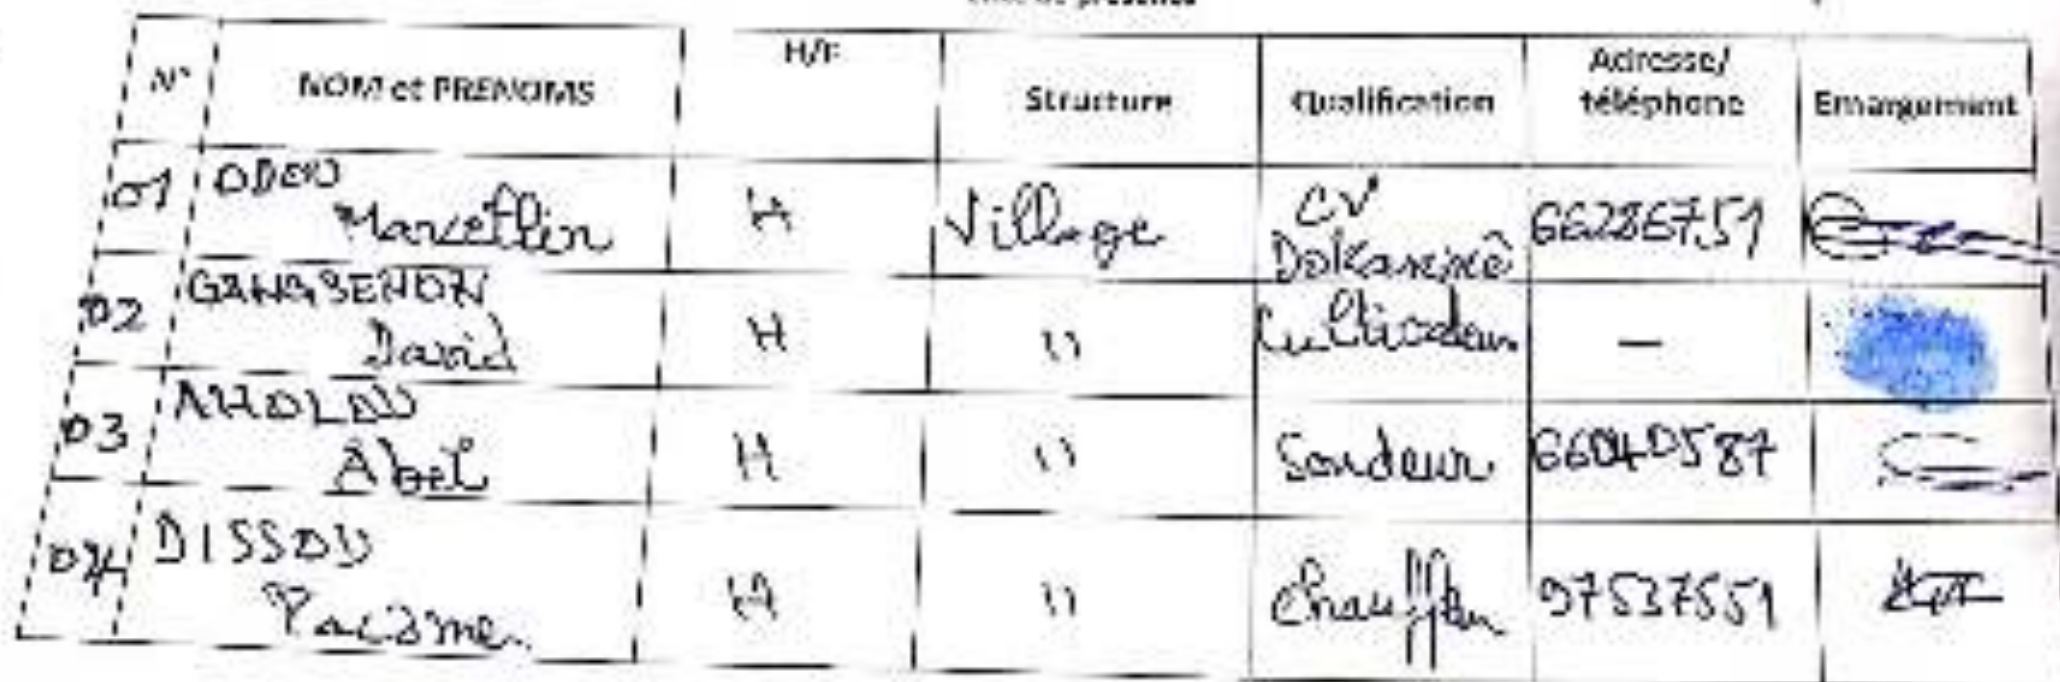 Liste de présence
N° NOM et PRENOMS H/F Structure Qualification Adresse/ téléphone Emargement
01 ODOU Marcellin H Village CV 66286751
02 David H " Cultivateur —
03 AHOLOU Abel H " Soudeur 66040587
04 DISSOU Pacôme H " Chauffeur 97537551